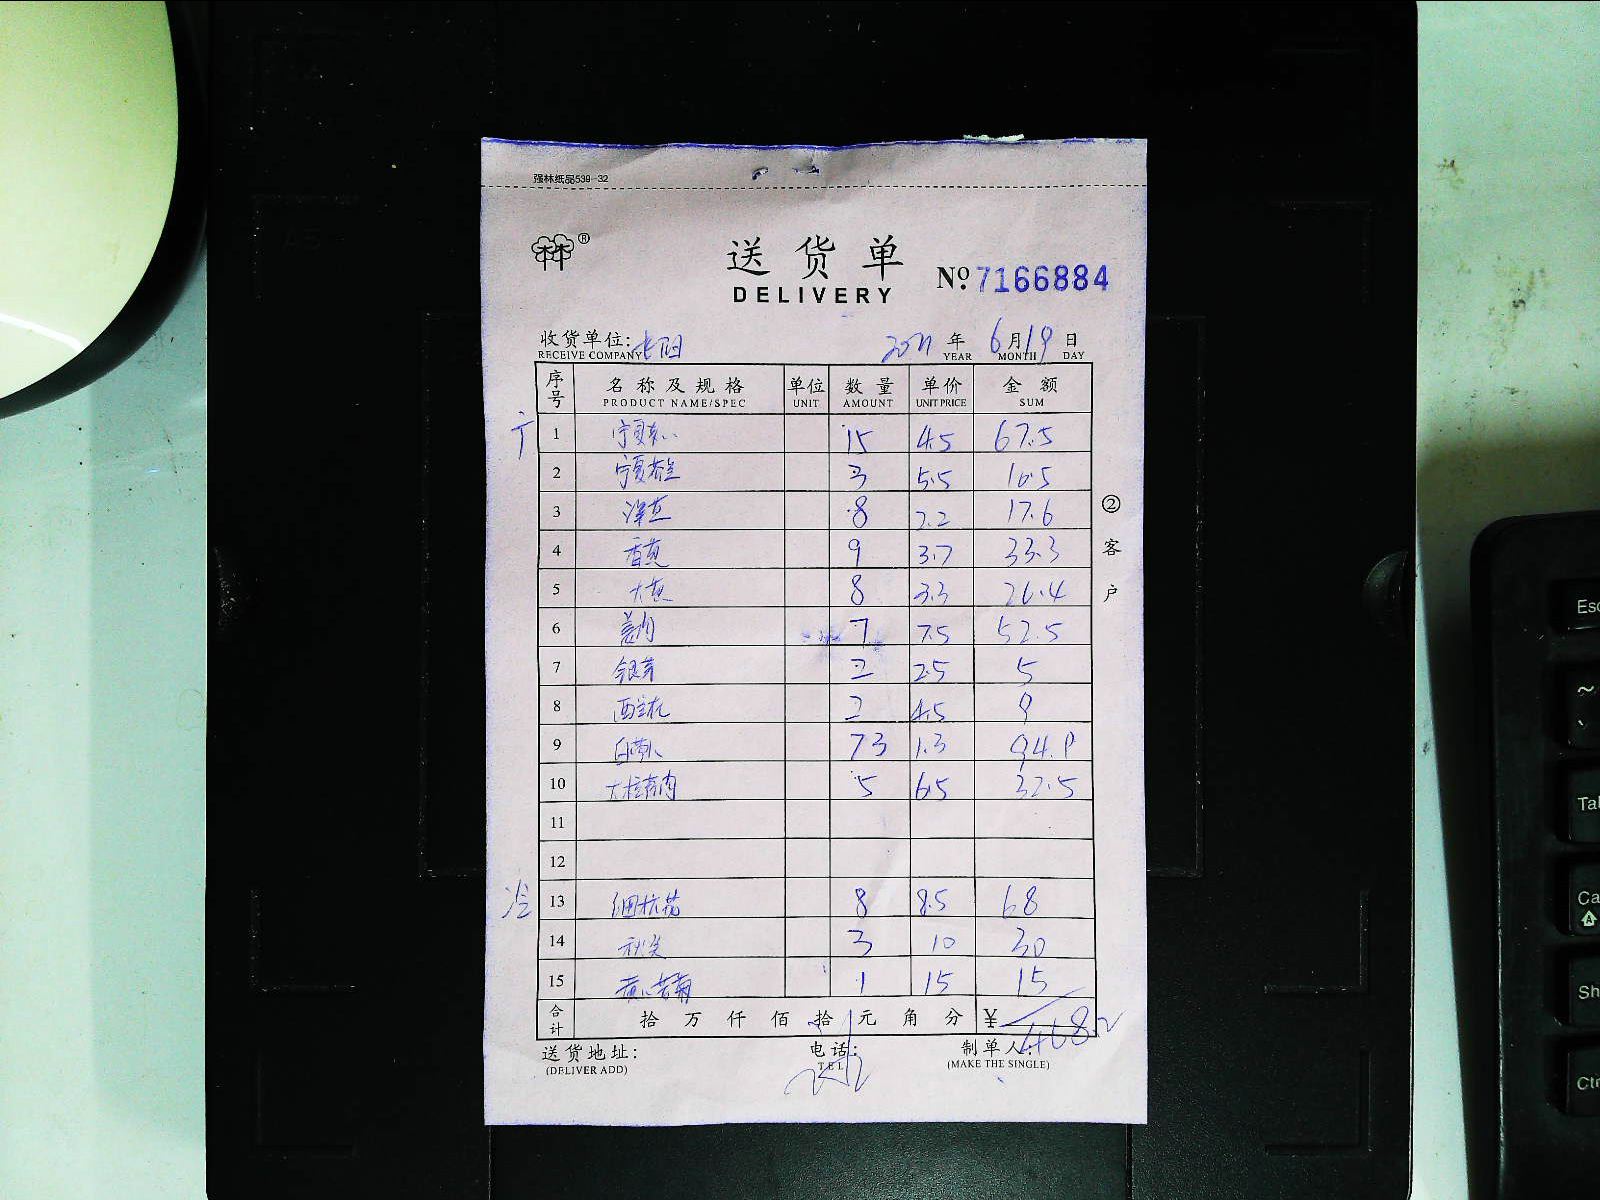 强林纸品539-32
送货单
DELIVERY
№ 7166884
收货单位: 长阳 2021 年 6 月 19 日
RECEIVE COMPANY YEAR MONTH DAY
序号 名称及规格 单位 数量 单价 金额
PRODUCT NAME/SPEC UNIT AMOUNT UNIT PRICE SUM
1 宁夏菜心 15 4.5 67.5
2 宁夏芥兰 3 5.5 16.5
3 洋葱 8 2.2 17.6
4 香 9 3.7 33.3
5 大 8 3.3 26.4
6 姜肉 7 7.5 52.5
7 银芽 2 2.5 5
8 西兰花 2 4.5 9
9 白萝卜 73 1.3 94.9
10 大 肉 5 6.5 32.5
11
12
冷 13 8 8.5 68
14 秋 3 10 30
15 黄 菊 1 15 15
合计 拾 万 仟 佰 拾 元 角 分 ¥ 468.2
送货地址: 电话: 制单人:
(DELIVER ADD) TEL (MAKE THE SINGLE)
② 客户
Esc
~
Tab
Ca
Sh
Ctr